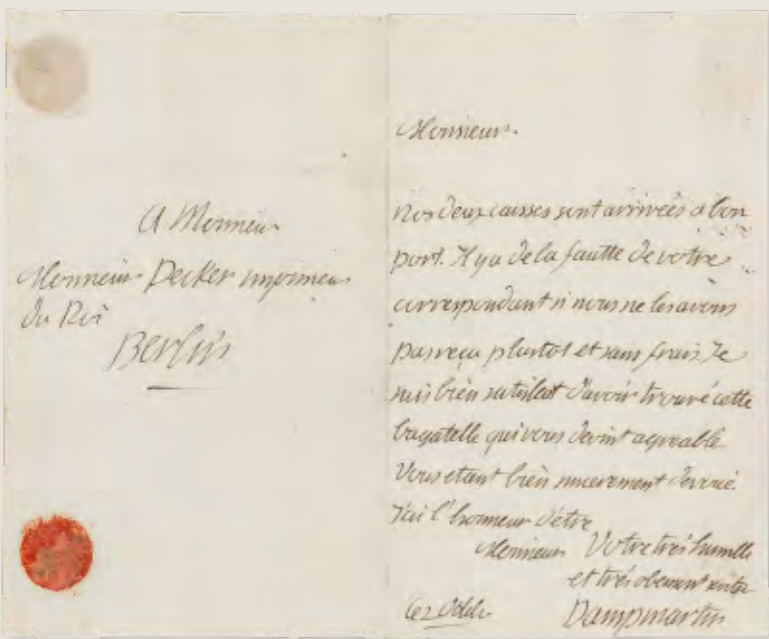 A Monsieur
Monsieur Decker imprimeur
du Roi
Berlin
Monsieur.
Nos deux caisses sont arrivées a bon
port. Il y a de la fautte de votre
correspondant si nous ne les avons
pas reçu plustot et sans frais. Je
suis bien d'avoir trouvé cette
bagatelle qui vous agreable
Vous etant bien sincerement devoué.
J'ai l'honneur d'être
Monsieur Votre très humble
et très obeissant
Dampmartin